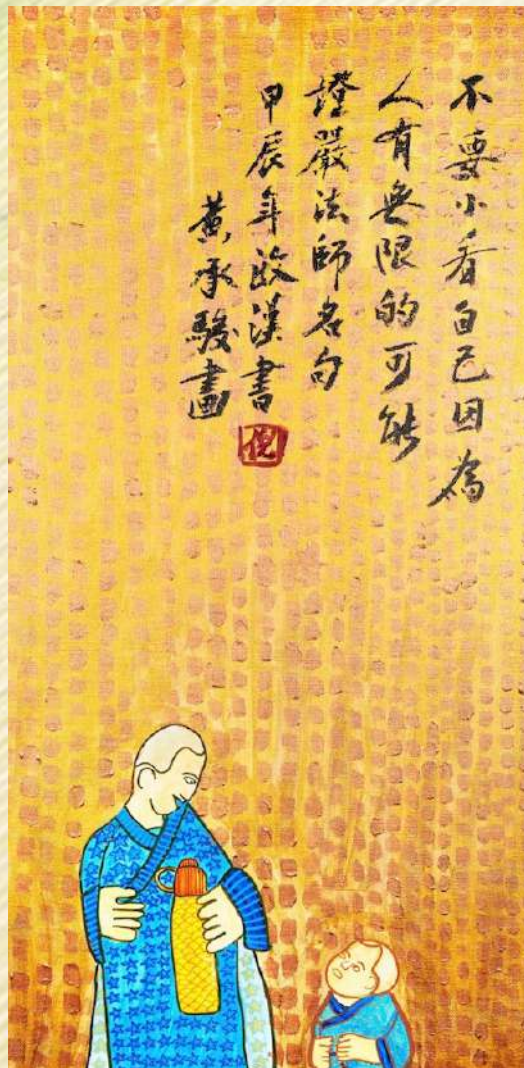 不要小看自己因為
人有無限的可能
證嚴法師名句
甲辰年政漢書
黃承駿畫
倪